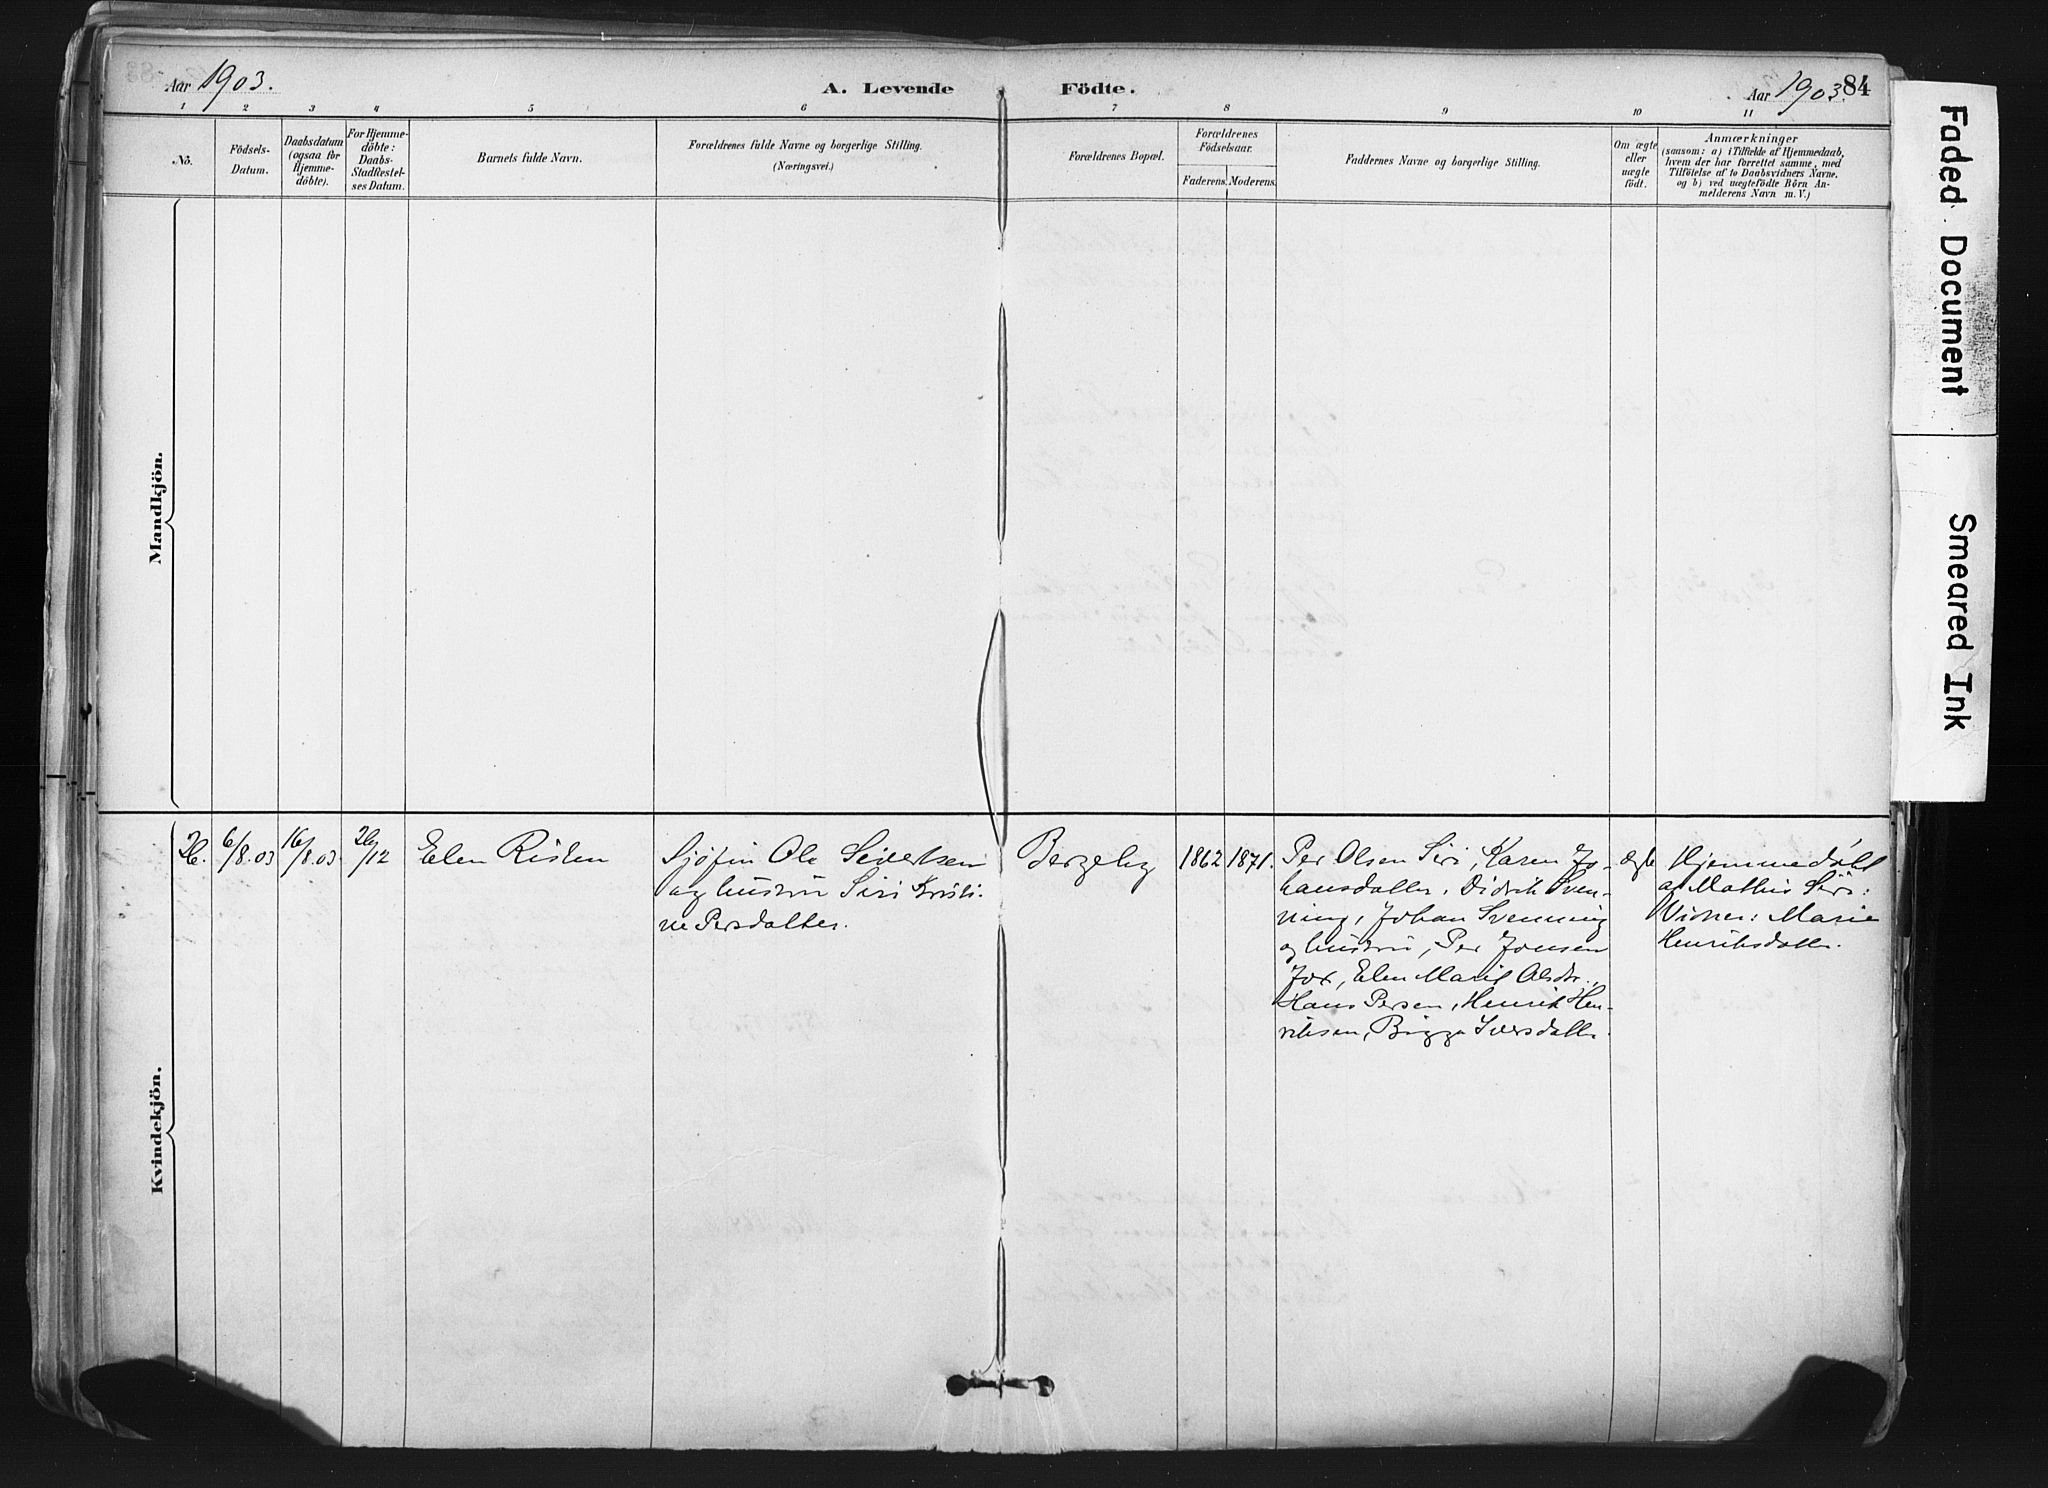 Aar 1903.
A. Levende Födte.
Aar 1903.
84
1 2 3 4 5 6 7 8 9 10 11
No.
Födsels-
Datum.
Daabsdatum
(ogsaa for
Hjemme-
döbte).
For Hjemme-
döbte:
Daabs-
Stadfæstel-
ses Datum.
Barnets fulde Navn.
Forældrenes fulde Navne og borgerlige Stilling.
(Næringsvei.)
Forældrenes Bopæl.
Forældrenes
Födselsaar.
Faderens. Moderens.
Faddernes Navne og borgerlige Stilling.
Om ægte
eller
uægte
födt.
Anmærkninger
(saasom: a) i Tilfælde af Hjemmedaab,
hvem der har forrettet samme, med
Tilföielse af to Daabsvidners Navne.
og b) ved uægtefödte Börn An-
melderens Navn m. V.)
Mandkjön.
Kvindekjön.
26.
6/8.03
16/8.03.
26/12
Elen Risten
Sjøfin Ole Seiertsen
og hustru Siri Kristi-
ne Persdatter.
Berzeby
1862
1871.
Per Olsen Siri, Karen Jo-
hansdatter, Didrik Sven-
ning, Johan Svenning
og hustru, Per Jonsen
Jox, Elen Marit Olsdtr.,
Hans Persen, Henrik Hen-
riksen, Brigga Iversdatter.
ægte
Hjemmedøbt
af Mathis Siri:
Vidner: Marie
Henriksdatter.
Faded Document
Smeared Ink